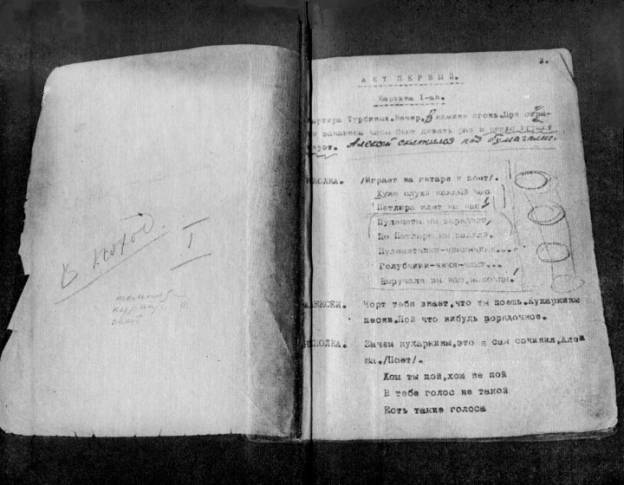 I
2.
АКТ ПЕРВЫЙ.
Картина I-ая.
Турбиных. Вечер. В камине огонь. При
часы бьют девять раз и
Алексей склонился над бумагами.
/Играет на гитаре и поет/.
Хуже слухи каждый час
Петлюра идет на нас!
Пулеметы мы зарядили,
По Петлюре мы палили.
Пулеметчики-чики-чики...
Голубчики-чики-чики...
Выручали вы нас, молодцы!
Чорт тебя знает, что ты поешь. Кухаркины
песни. Пой что нибудь порядочное.
Зачем кухаркины, это я сам сочинил, Алеш
ка. /Поет/.
Хош ты пой, хош не пой
В тебе голос не такой
Есть такие голоса